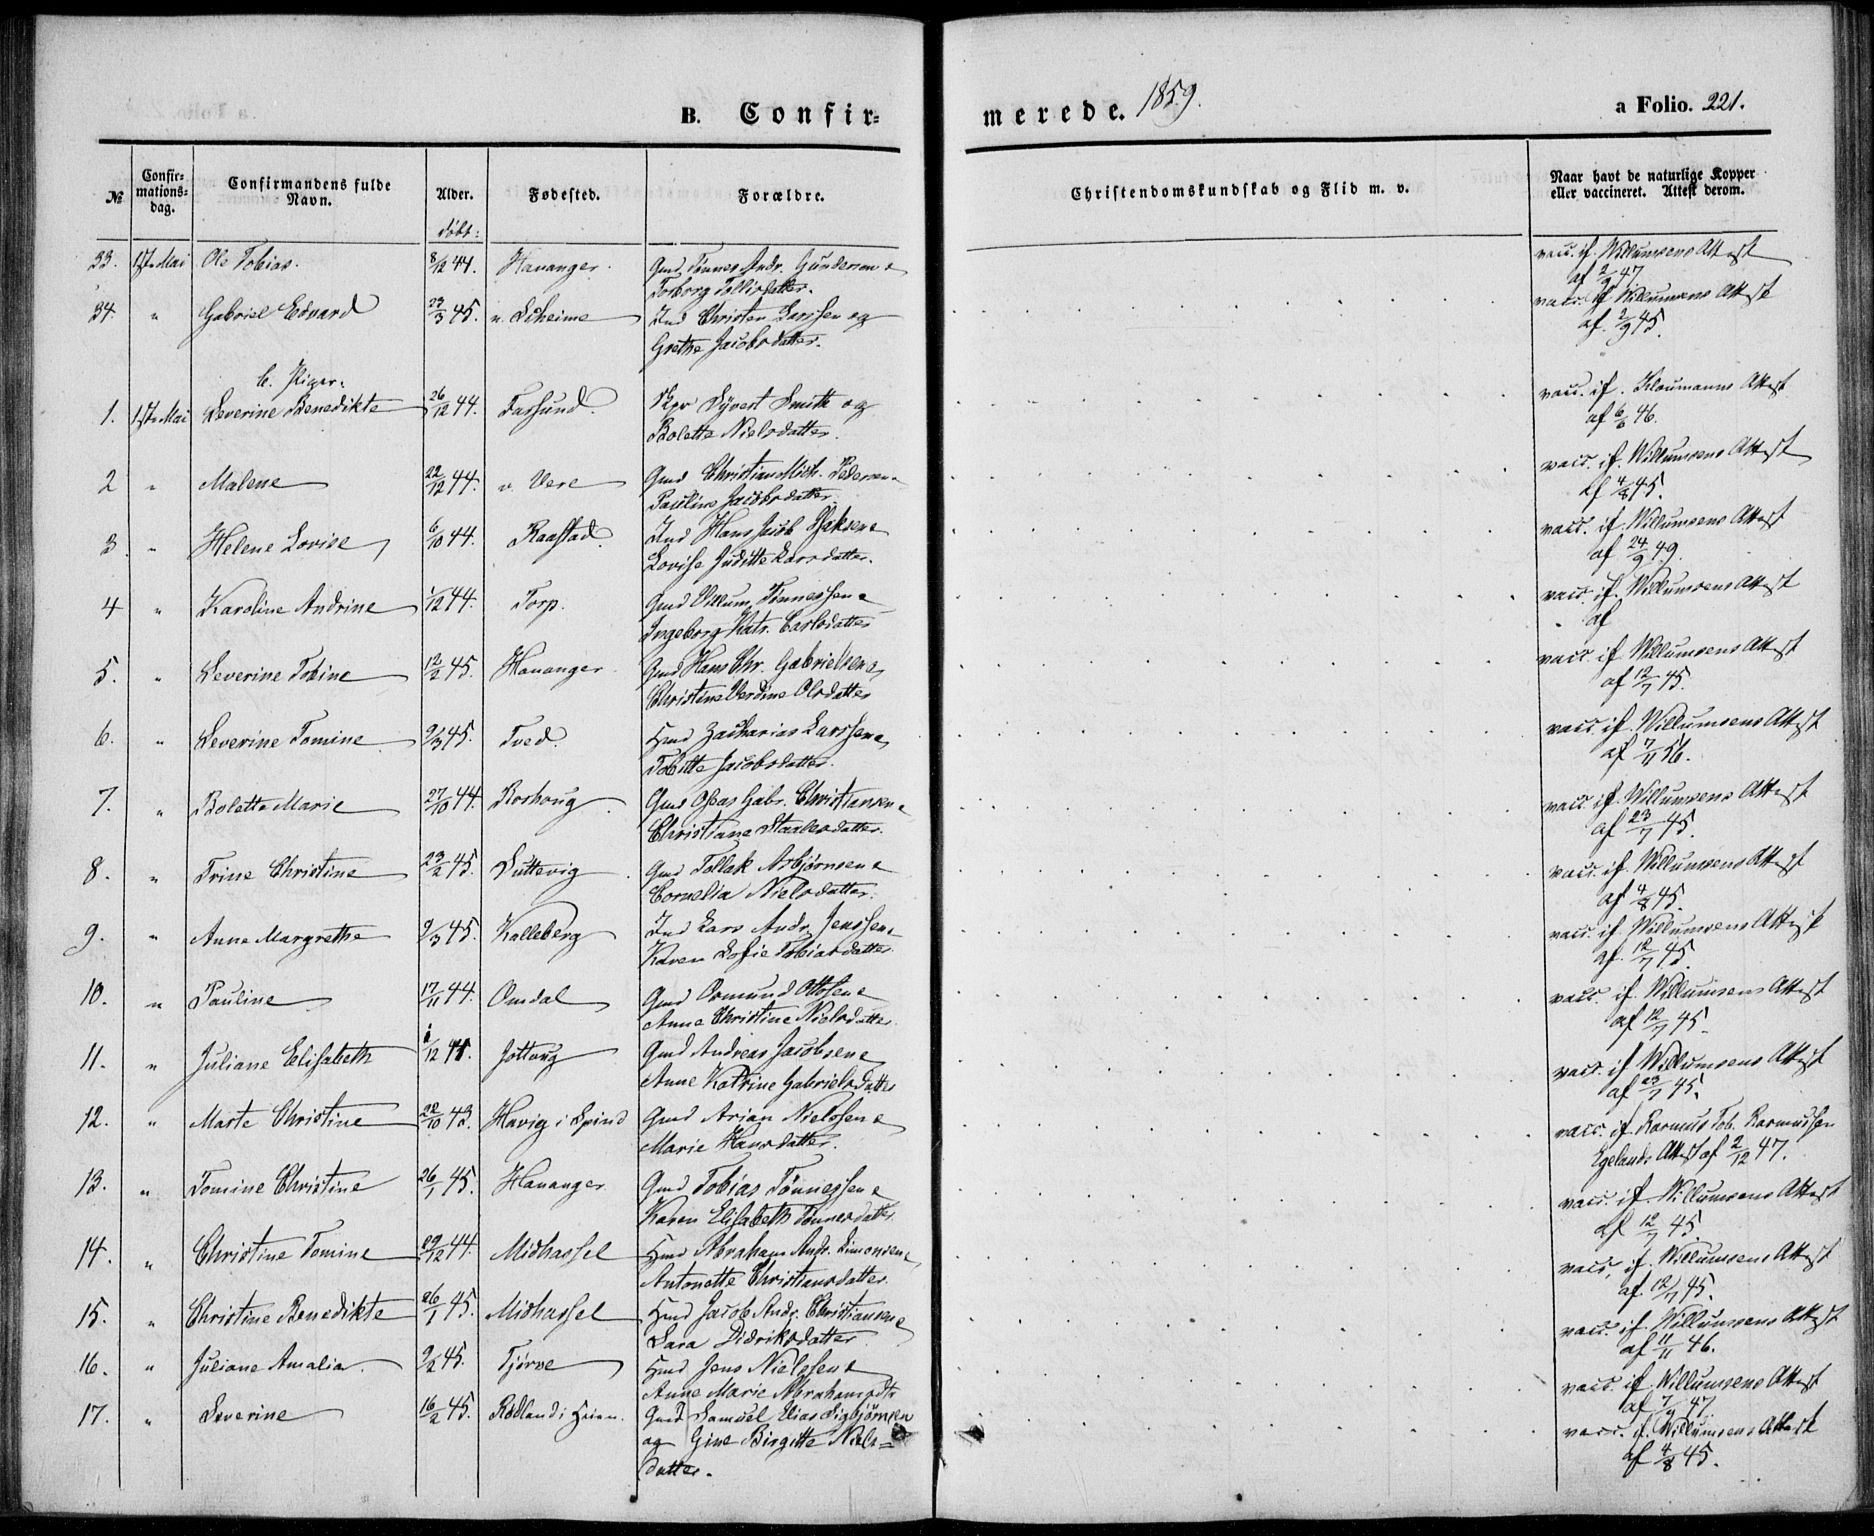 B. Confir=
merede. 1859.
a Folio. 221.
№
Confir=
mations=
dag.
Confirmandens fulde
Navn.
Alder.
døbt:
Fødested.
Forældre.
Christendomskundskab og Flid m. v.
Naar havt de naturlige Kopper
eller vaccineret. Attest derom.
33. 1ste Mai Ole Tobias. 8/12 44. Hananger. Gmd. Tønnes Andr. Gundersen &
Torborg Tollisdatter.
vacc. if. Willumsens Attest
af 2/9 47
34. " Gabriel Edvard 23/3 45. v. Ind Christen Larssen og
Grethe Jacobsdatter.
vacc. if Willumsens Attest
af. 2/9 45.
b. Piger.
1. 1ste Mai Severine Benedikte 26/12 44. Farsund. Skpr Syvert Smith og
Bolette Nielsdatter.
vacc. if. Klaumanns Attest
af 6/6 46.
2 " Malene 22/12 44. v. Vere Gmd Christian Mich. Pedersen &
Pauline Jacobsdatter
vacc. if. Willumsens Attest
af 4/8 45.
3. " Helene Lovise 6/10 44. Raastad. Ind Hans Jacob Isaksen &
Lovise Juditte Larsdatter.
vacc. if Willumsens Attest
af 24/9 49.
4 " Karoline Andrine 1/12 44. Torp. Gmd Villum Tønnessen &
Ingeborg Katr. Carlsdatter
vacc. if. Willumsens Attest
af
5. " Severine Tobine 12/2 45. Hananger Gmd Hans Chr. Gabrielsen &
Christine Verdine Olsdatter
vacc. if Willumsens Attest
af 12/7 45.
6. " Severine Tomine 9/3 45. Tved. Hmd Zacharias Larssen &
Tobitte Jacobsdatter.
vacc. if. Willumsens Attest
af 7/11 56.
7. " Bolette Marie 27/10 44. Roshoug Gmd Oseas Gabr. Christiansen &
Christiane Staalesdatter.
vacc. if. Willumsens Attest
af 23/7 45.
8. " Trine Christine 23/2 45. Luttevig Gmd Tollak Asbjørnsen &
Cornelia Nielsdatter.
vacc. if. Willumsens Attest
af 4/8 45.
9. " Anne Margrethe 9/3 45. Kalleberg Ind Lars Andr. Jenssen &
Karen Sofie Tobiasdatter
vacc. if Willumsens Attest
af. 12/7 45.
10. " Pauline 17/11 44. Omdal Gmd Osmund Ottosen &
Anne Christine Nielsdatter.
vacc. if. Willumsens Attest
af 12/7 45.
11. " Juliane Elisabeth 1/12 44. Jøttoug Gmd Andreas Jacobsen &
Anne Katrine Gabrielsdatter
vacc. if Willumsens Attest
af 23/7 45.
12. " Marte Christine 22/10 43. Havig i Spind Gmd Arian Nielssen &
Marie Hansdatter.
vacc. if Rasmus Tob. Rasmussen
Egelands Attest af 2/12 47.
13. " Tomine Christine 26/1 45. Hananger Gmd Tobias Tønnessen &
Karen Elisabeth Tønnesdatter
vacc. if. Willumsens Attest
af 12/7 45.
14. " Christine Tomine 29/12 44. Midhassel Hmd Abraham Andr. Simonsen &
Antonette Christiansdatter.
vacc. if. Willumsens Attest
af 12/7 45.
15. " Christine Benedikte 26/1 45. Midhassel Hmd Jacob Andr. Christiansen &
Sara Didriksdatter
vacc. if. Willumsens Attest
af 11/11 46.
16. " Juliane Amalia. 9/2 45. Tjørve Hmd Jens Nielssen &
Anne Marie Abrahamsdtr
vacc. if Willumsens Attest
af 7/9 47
17. " Severine 16/2 45. Rødland i Gmd Samuel Elias Sigbjørnsen
og Gine Birgitte Niels=
datter.
vacc. if. Willumsens Attest
af 4/8 45.